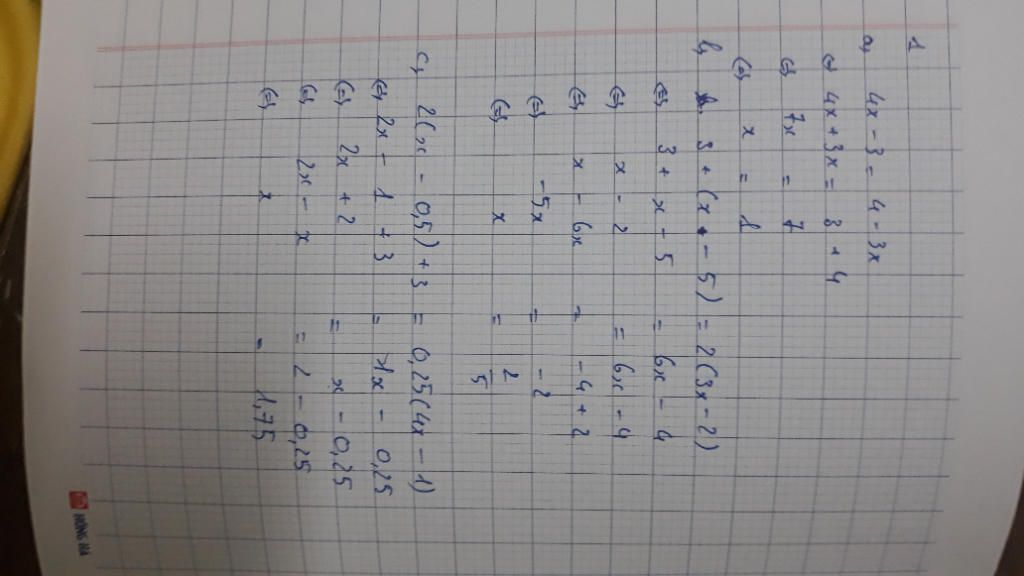 1
a, 4x - 3 = 4 - 3x
(=) 4x + 3x = 3 + 4
(=) 7x = 7
(=) x = 1
b, 3 + (x - 5) = 2(3x - 2)
(=) 3 + x - 5 = 6x - 4
(=) x - 2 = 6x - 4
(=) x - 6x = -4 + 2
(=) -5x = -2
(=) x = 2/5
c, 2(x - 0,5) + 3 = 0,25(4x - 1)
(=) 2x - 1 + 3 = 1x - 0,25
(=) 2x + 2 = x - 0,25
(=) 2x - x = 2 - 0,25
(=) x = 1,75
HỒNG HÀ